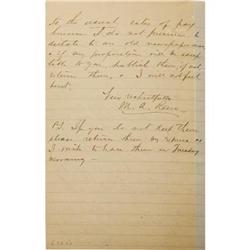 to the usual rates of pay
because I do not presume to
dictate to an old newspaper man
& if my proposition will be
to you, publish them, if not
return them, & I will not feel
hurt.
Very respectfully
M. A.
P.S. If you do not keep them
please return them by express as
I wish to have them on Tuesday
morning